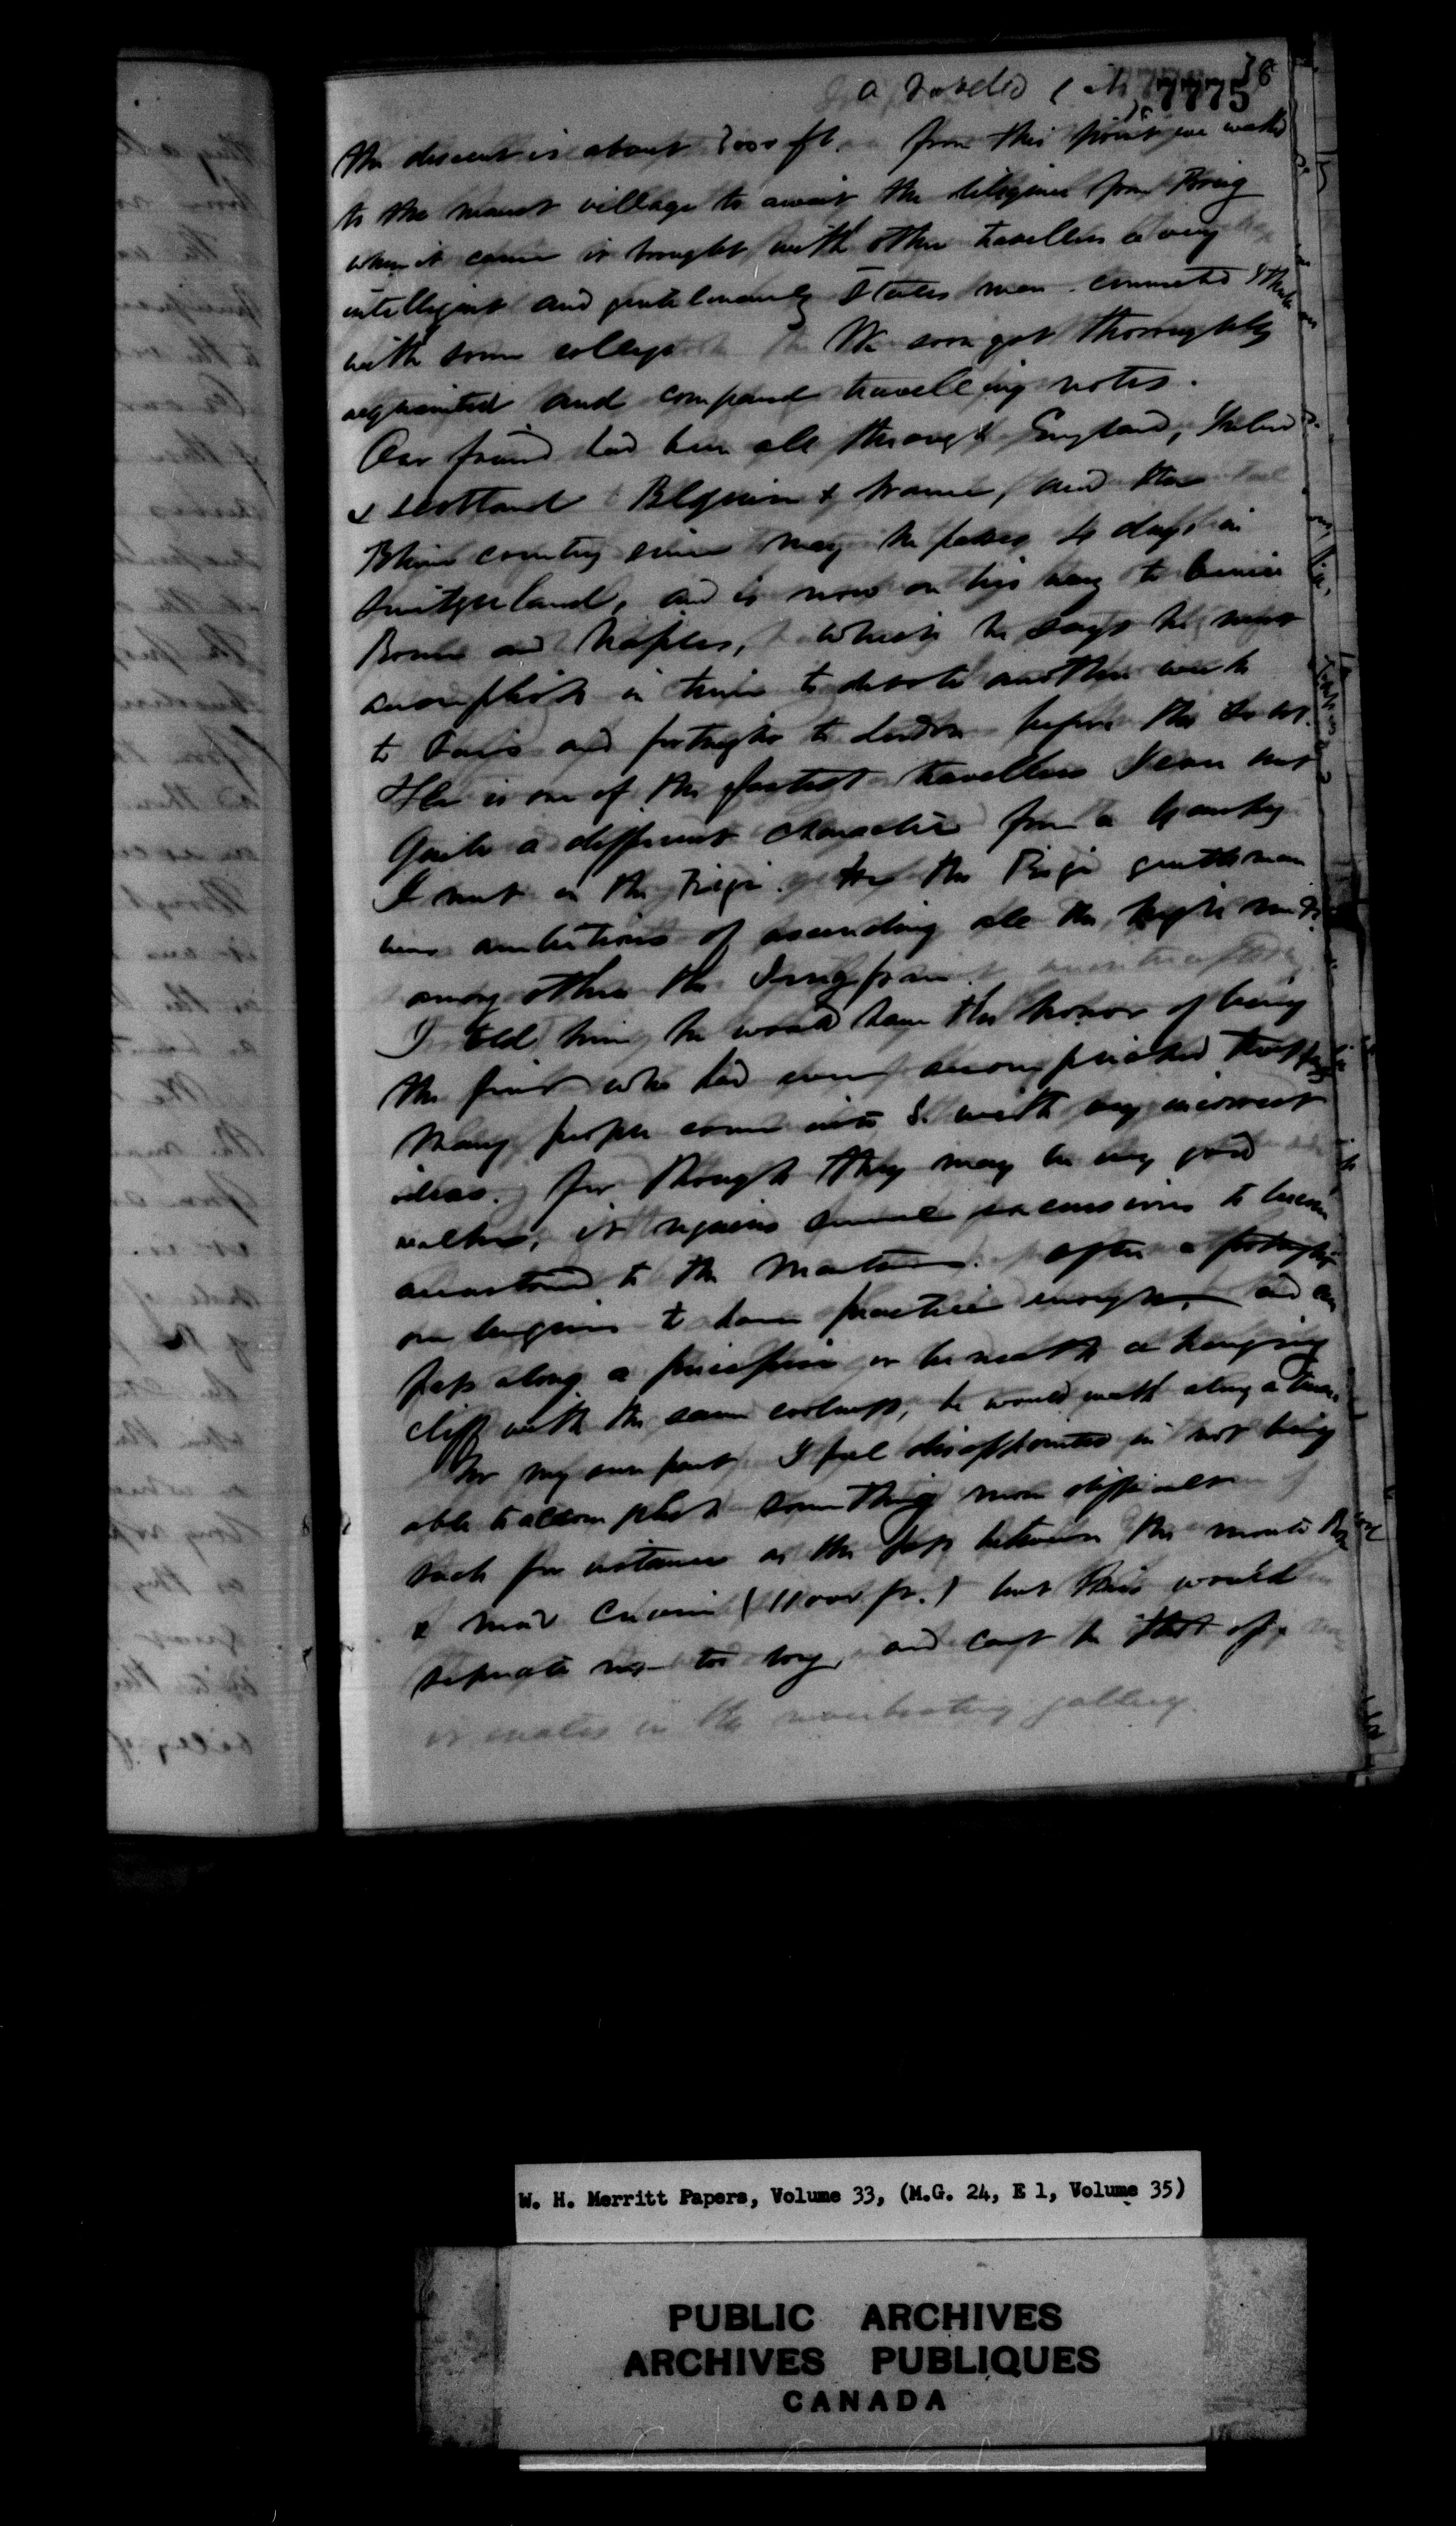 38
a
7775
the descent is about 3000 ft. from this point we walked
to the nearest village to await the diligence from Brieg
when it came it brought with other travellers a very
intelligent and gentlemanly States man connected I think
with some college We soon got thoroughly
acquainted and compared travelling notes.
Our friend had been all through England, Ireland
& Scotland Belgium & France, and the
Rhine country since may he passes 4 days in
Switzerland, and is now on his way to Venice
Rome and Naples, which he says he must
accomplish in time to devote another week
to Paris and fortnight to London before the
He is one of the fastest travellers I ever met
Quite a different character from a Yankey
I met on the Rigi. the Rigi gentleman
was ambitious of ascending all the high
among others the Jungfrau.
I told him he would have the honor of being
the first who had ever accomplished that
Many people come into S. with very incorrect
ideas. for though they may be very good
walkers, it requires several excursions to become
accustomed to the Mountains. after a fortnight
one begins to have practice enough, and can
pass along a precipice or beneath a hanging
cliff with the same coolness, he would walk along a
For my own part I feel disappointed in not being
able to accomplish something more difficult
such for instance as the pass between the monte Rosa
& Mont Cervin (11000 ft.) but this would
separate us too long, and can't be thot of.
in the gallery.
W. H. Merritt Papers, Volume 33, (M.G. 24, E 1, Volume 35)
PUBLIC ARCHIVES
ARCHIVES PUBLIQUES
CANADA